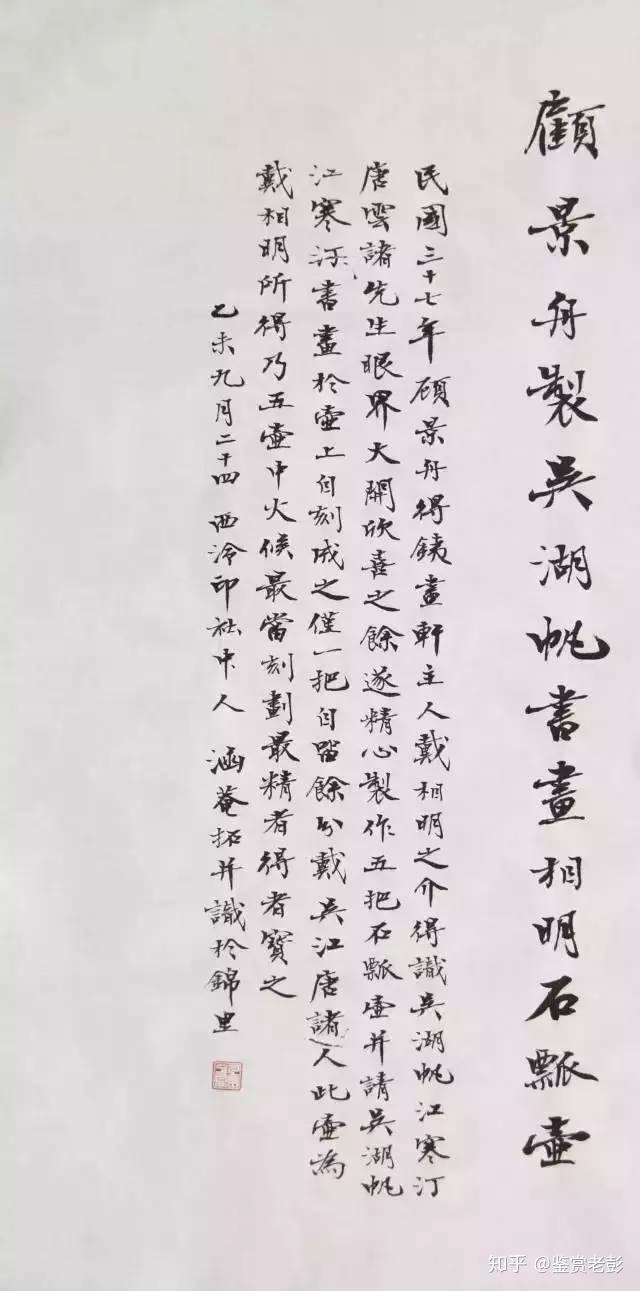 顧景舟製吳湖帆書畫相明石瓢壺
民國三十七年顾景舟得鉄畫軒主人戴相明之介得識吳湖帆江寒汀
唐雲諸先生眼界大開欣喜之餘遂精心製作五把石瓢壺并請吳湖帆
江寒汀書畫於壺上自刻成之僅一把自留餘分戴吳江唐諸人此壺為
戴相明所得乃五壺中火候最當刻劃最精者得者寶之
乙未九月二十四 西泠印社中人 涵菴拓并識於錦里
知乎 @鉴赏老彭